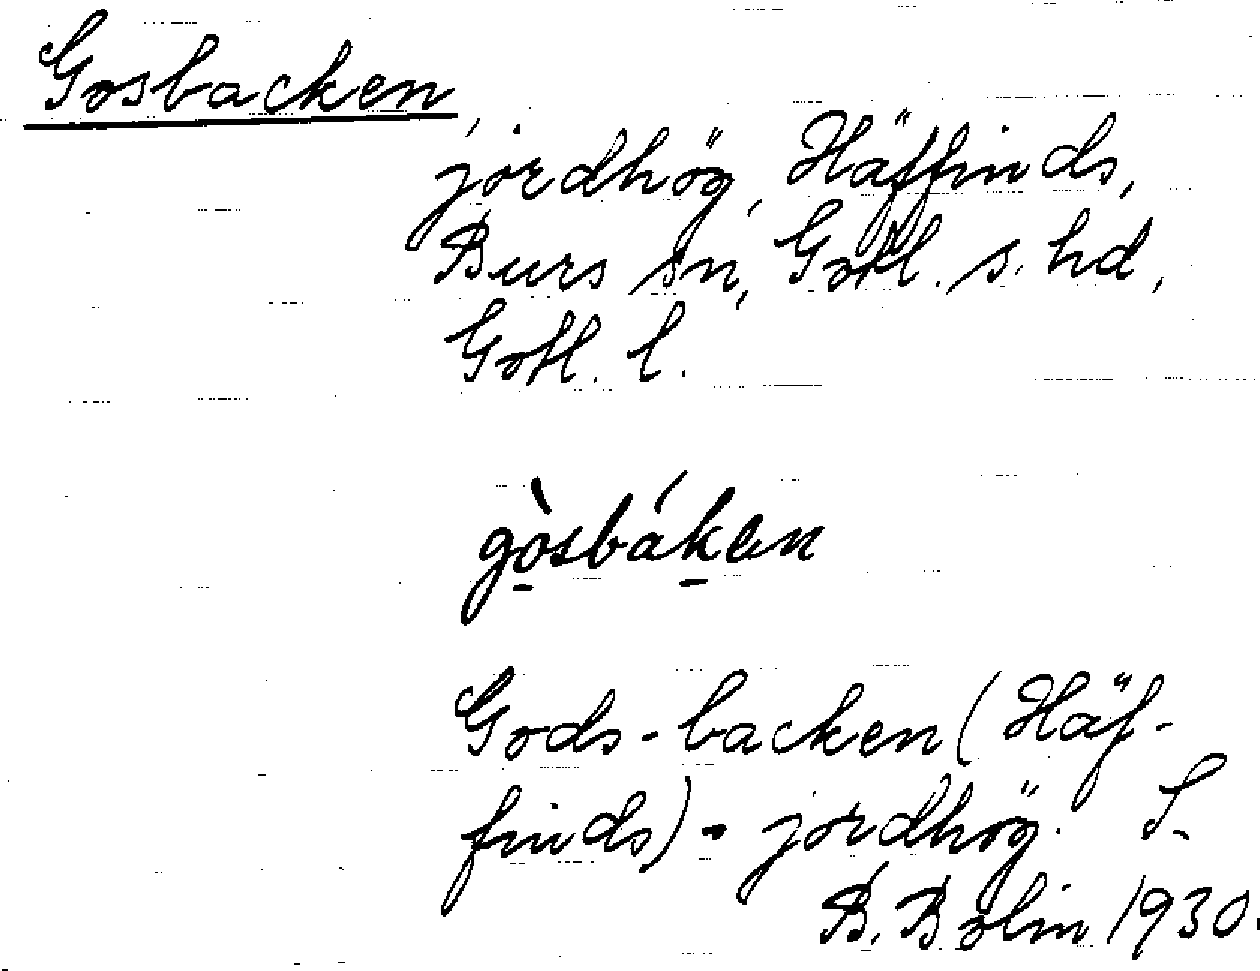 Gosbacken,
jordhög, Häffinds,
Burs sn, Gotl. s. hd,
Gotl. l.
gòsbáken
Gods-backen (Häf-
finds) - jordhög. S.
B. Bolin 1930.